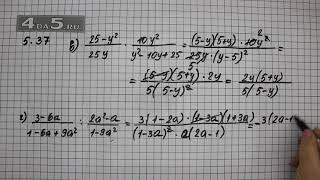 4DA5.RU
5.37
в) (25-y²)/(25y) · (10y²)/(y²-10y+25) = ((5-y)(5+y)·10y²)/(25y·(y-5)²) =
= ((5-y)(5+y)·2y)/(5(5-y)²) = (2y(5+y))/(5(5-y))
г) (3-6a)/(1-6a+9a²) : (2a²-a)/(1-9a²) = (3(1-2a)·(1-3a)(1+3a))/((1-3a)²·a(2a-1)) = -3(2a-1